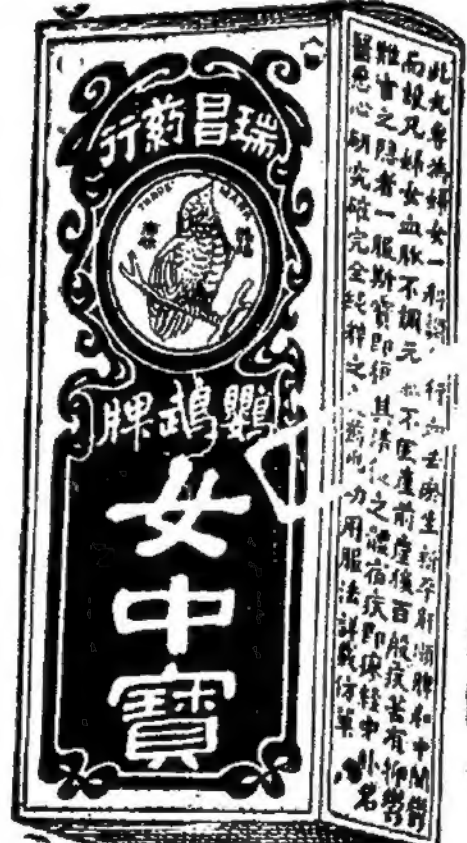 瑞昌葯行
TRADE MARK
鸚鵡牌
女中寶
此丸專為婦女一科 行血去瘀生新平肝順脾和中開鬱
而設凡婦女血脈不調元 不固產前產後百般疾苦有抑鬱
難言之隱者一服斯寶即復其清 之體宿疾即療經中外名
醫悉心研究確完全純粹之 功用服法詳載仿單